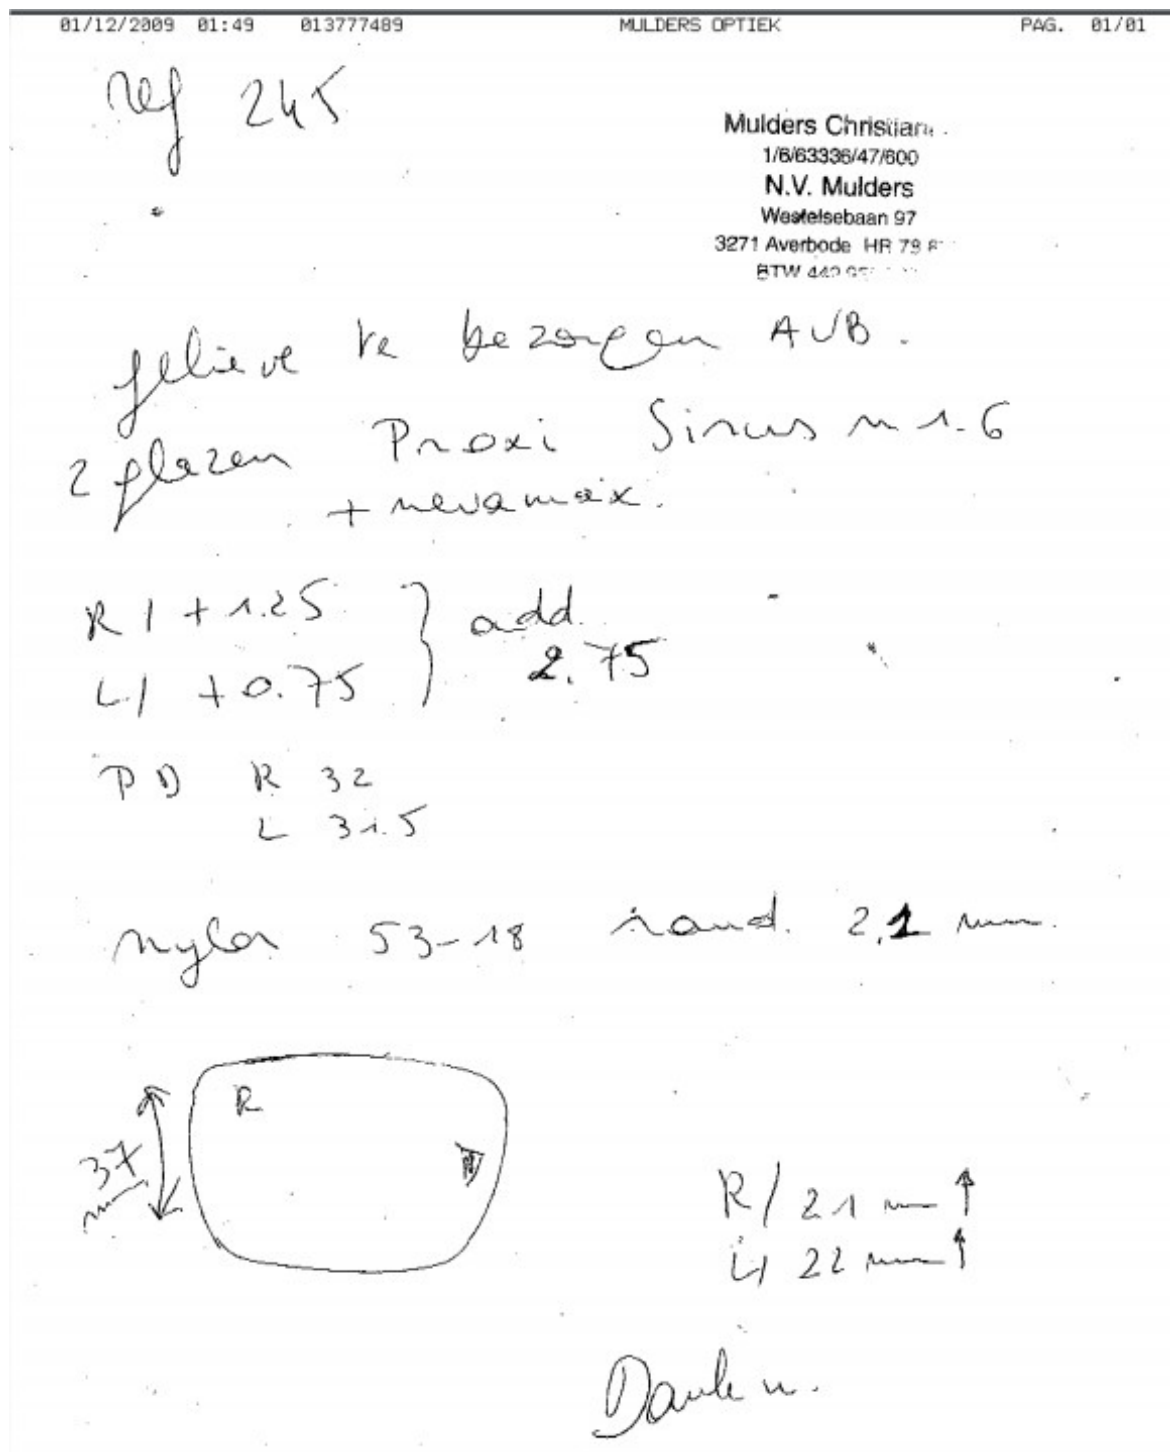 01/12/2009 01:49 013777489 MULDERS OPTIEK PAG. 01/01
ref 245
Mulders Christian
1/6/63336/47/600
N.V. Mulders
Westelsebaan 97
3271 Averbode HR 79
BTW 442
gelieve te bezorgen AUB.
2 glazen Proxi Sirus n 1.6
+ nevamax.
R/ + 1.25 } add.
L/ + 0.75 2.75
PD R 32
L 31.5
nylor 53-18 rand. 2,1 mm.
R
37
mm
R/ 21 mm ↑
L/ 22 mm ↑
Dank u.